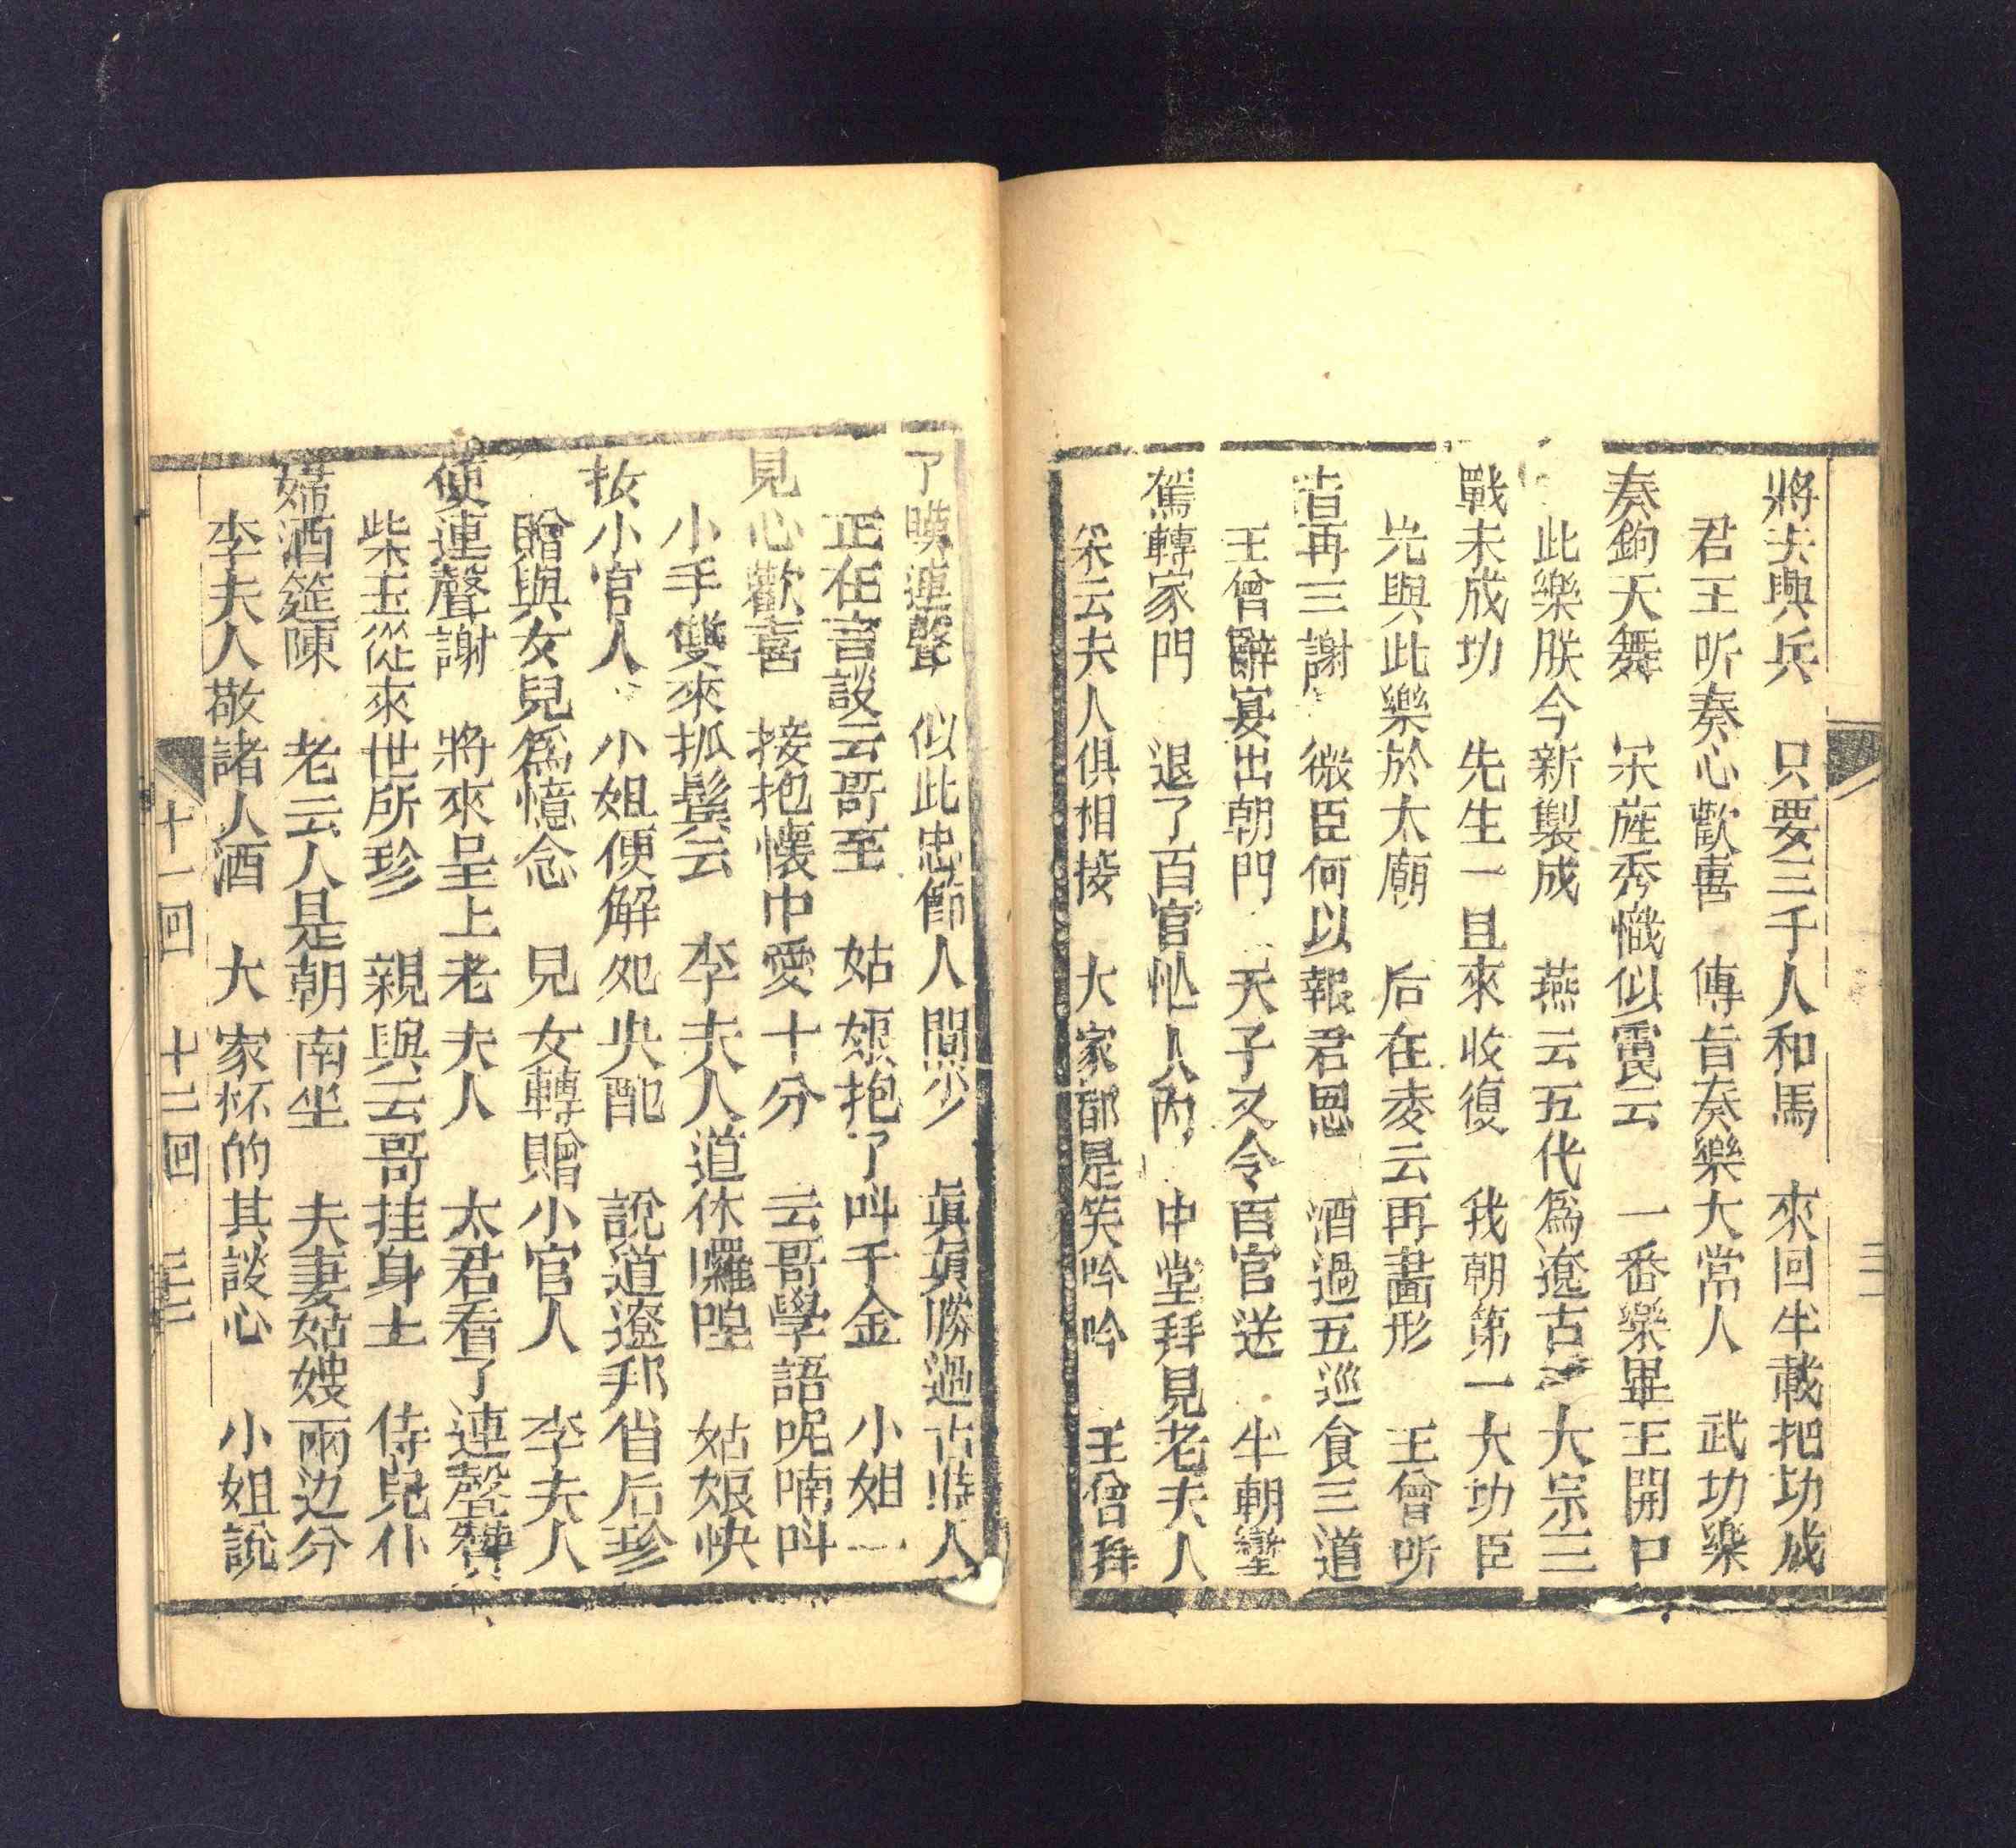 將夫興兵　只要三千人和馬　來回半載把功成
君王听奏心歡喜　傳旨奏樂大常人　武功樂
奏鈞天舞　采旌秀幟似震云　一番樂畢王開口
此樂朕今新製成　燕云五代爲遼古　大宗三
戰未成功　先生一旦來收復　我朝第一大功臣
先與此樂於太廟　后在凌云再畫形　王曾听
旨再三謝　微臣何以報君恩　酒過五巡食三道
王曾辭宴出朝門　天子又令百官送　半朝鑾
駕轉家門　退了百官忙人內　中堂拜見老夫人
采云夫人俱相接　大家都是笑吟吟　王曾拜
了嘆連聲　似此忠節人間少　眞眞勝過古時人
正在言談云哥至　姑娘抱了叫千金　小姐一
見心歡喜　接抱懷中愛十分　云哥學語呢喃叫
小手雙來抓鬓云　李夫人道休囉唣　姑娘快
扳小官人　小姐便解処央配　說道遼邦肖后珍
贈與女兒爲憶念　兒女轉贈小官人　李夫人
便連聲謝　將來呈上老夫人　太君看了連聲贊
柴玉從來世所珍　親與云哥挂身士　侍兒仆
婦酒筵陳　老云人是朝南坐　夫妻姑嫂兩边分
李夫人敬諸人酒　大家杯的其談心　小姐說
十一回　十二回　三二